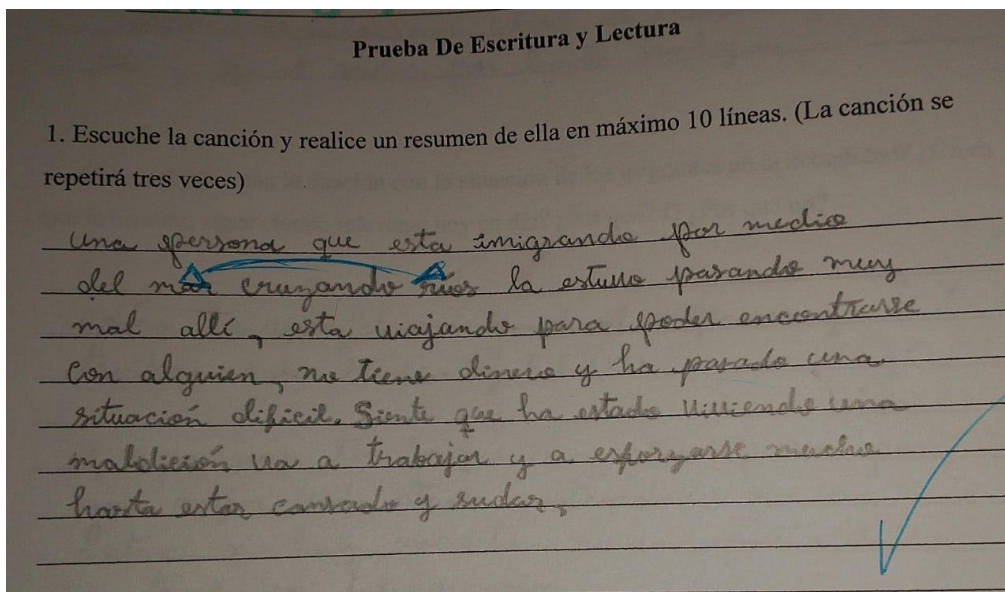 Prueba De Escritura y Lectura
1. Escuche la canción y realice un resumen de ella en máximo 10 líneas. (La canción se
repetirá tres veces)
una persona que esta imigrando por medio
del mar cruzando rios la estuvo pasando muy
mal allí, esta viajando para poder encontrarse
con alguien, no tiene dinero y ha pasado una
situación dificil. Siente que ha estado viviendo una
maldición va a trabajar y a esforzarse mucho
hasta estar cansado y sudar.